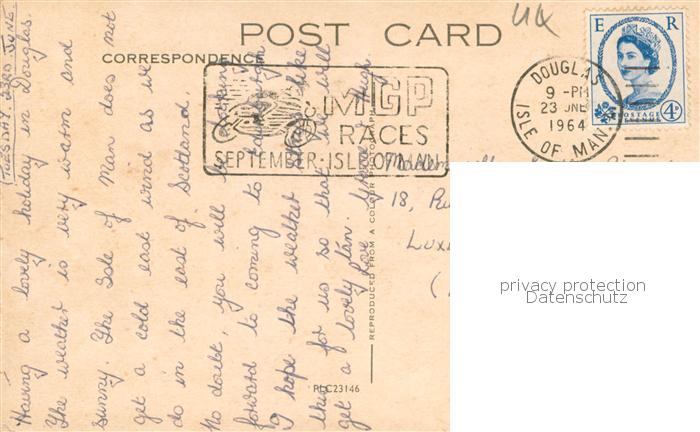 POST CARD
CORRESPONDENCE
UK
E R
POSTAGE
4D
DOUGLAS
9 -PM
23 JNE
1964
ISLE OF MAN
MGP
RACES
SEPTEMBER·ISLE OF MAN
(TUESDAY, 23RD JUNE
Having a lovely holiday in Douglas.
The weather is very warm and
sunny. The Isle of Man does not
get a cold east wind as we
do in the east of Scotland.
No doubt, you will be
forward to coming to
I hope the weather like
this for us so that will
get a lovely tan.
Love
18,
REPRODUCED FROM A COLOUR
PLC23146
privacy protection
Datenschutz